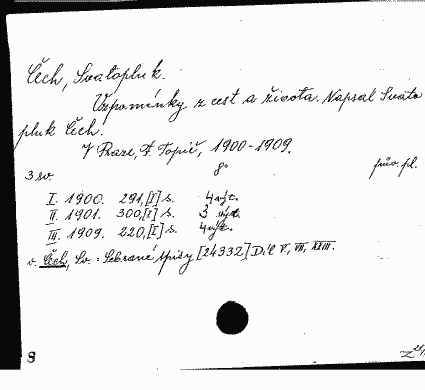 Čech, Svatopluk.
Vzpomínky z cest a života. Napsal Svato
pluk Čech.
V Praze, F. Topič, 1900-1909.
3 sv. 8° pův. pl.
I. 1900. 291,[I] s. 4 výt.
II. 1901. 300,[I] s. 3 výt.
III. 1909. 220,[I] s. 4 výt.
v. Čech, Sv.: Sebrané spisy [24932] Díl V, VII, XXIII.
S